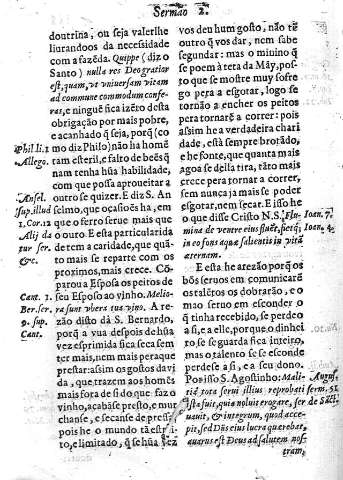 Sermão 2.
doutrina, ou seja valerlhe
liurandoos da necesidade
com a fazẽda. Quippe (diz o
Santo) nulla res Deo gratior
est, quam, vt vniuersam vitam
ad commune commodum confe-
ras, e ninguẽ fica izẽto desta
obrigação por mais pobre,
e acanhado q̃ seja, porq̃ (co
Phil li. 1
mo diz Philo) não ha homẽ
Allego.
tam esteril, e falto de beẽs q̃
nam tenha hũa habilidade,
com que possa aproueitar a
outro se quizer. E diz S. An
Ansel.
selmo, que oçasioẽs ha, em
sup. illud
1. Cor. 12
que o ferro serue mais que
Alij da
o ouro. E esta particularida
tur ser.
de tem a caridade, que quã-
&c.
to mais se reparte com os
proximos, mais crece. Cõ-
paroua Esposa os peitos de
Cant. 1.
seu Esposo ao vinho. Melio-
Ber. ser
ra sunt vbera tua vino. A re-
9. sup.
zão disto dà S. Bernardo,
Cant.
porq̃ a vua despois de hũa
vez esprimida fica seca sem
ter mais, nem mais pera que
prestar: assim os gostos da vi
da, que, trazem aos homẽs
mais fora de si do que faz o
vinho, acabãse presto, e mur
chanse, e secanse de pres-
pois he o mundo tã estri-
to, e limitado, q̃ se hũa vez
vos deu hum gosto, não tẽ
outro q̃ vos dar, nem sabe
segundar: mas o miuino q̃
se poem à teta da Mãy, pos-
to que se mostre muy sofre
go pera a esgotar, logo se
tornão a encher os peitos
pera tornarẽ a correr: pois
assim he a verdadeira chari
dade, està sempre brotãdo,
e he fonte, que quanta mais
agoa se della tira, tãto mais
crece pera tornar a correr,
sem nunca ja mais se poder
esgotar, nem secar. E isso he
o que disse Cristo N. S. Flu-
Ioan. 7.
mina de ventre eius fluẽt, fietq̃;
Ioan. 4.
in eo fons aquæ salientis in vitã
æternam.
E esta he a rezão porq̃ os
bõs seruos em comunicarẽ
os talẽtos os dobrarão, e o
mao seruo em esconder o
q̃ tinha recebido, se perdeo
a si, e a elle, porque, o dinhei
ro se se guarda fica inteiro,
mas o talento se se esconde
perdese a si, e a seu dono.
Por isso S. Agostinho: Mali-
Augus
tiã tota serui illius reprobati
serm. 51
ista fuit, quia noluit erogare, ser
de Sãct.
uauit, & integrum, quod acce-
pit, sed Deus eius lucra querebat,
auarus est Deus ad salutem nos-
tram,